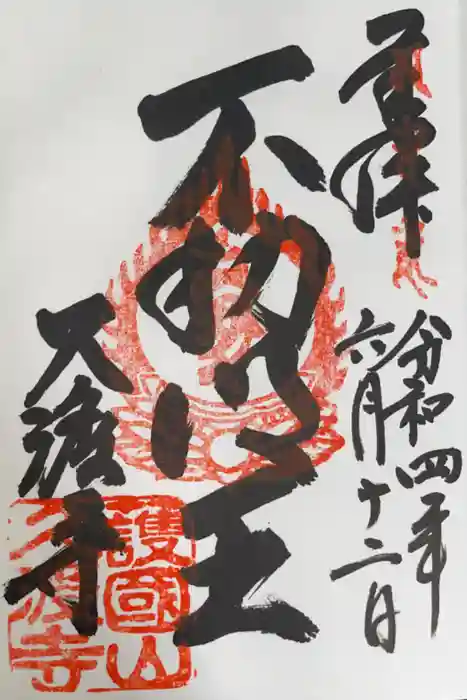 奉拝
令和四年
六月十二日
不動明王
久渡寺
護國山
久渡寺